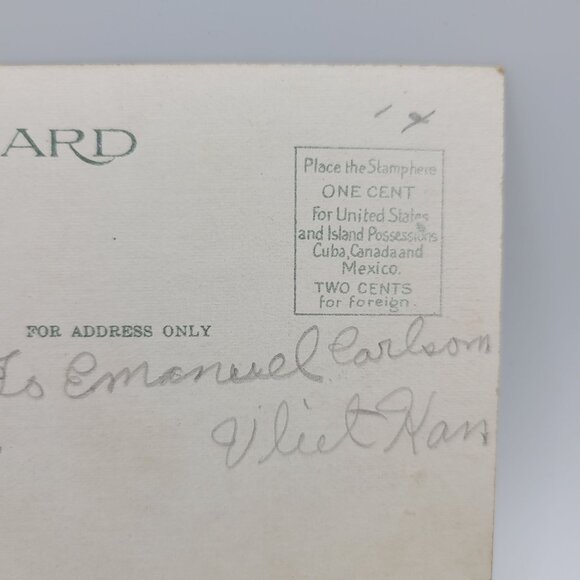 ARD
Place the Stamp here
ONE CENT
For United States
and Island Possessions
Cuba, Canada and
Mexico.
TWO CENTS
for foreign.
FOR ADDRESS ONLY
To Emanuel Carlson
Vliet Kan